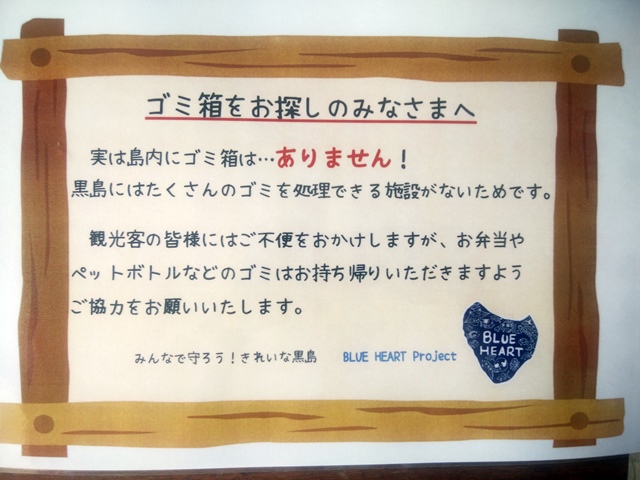 ゴミ箱をお探しのみなさまへ
実は島内にゴミ箱は…ありません！
黒島にはたくさんのゴミを処理できる施設がないためです。
観光客の皆様にはご不便をおかけしますが、お弁当や
ペットボトルなどのゴミはお持ち帰りいただきますよう
ご協力をお願いいたします。
みんなで守ろう！きれいな黒島　BLUE HEART Project
BLUE
HEART